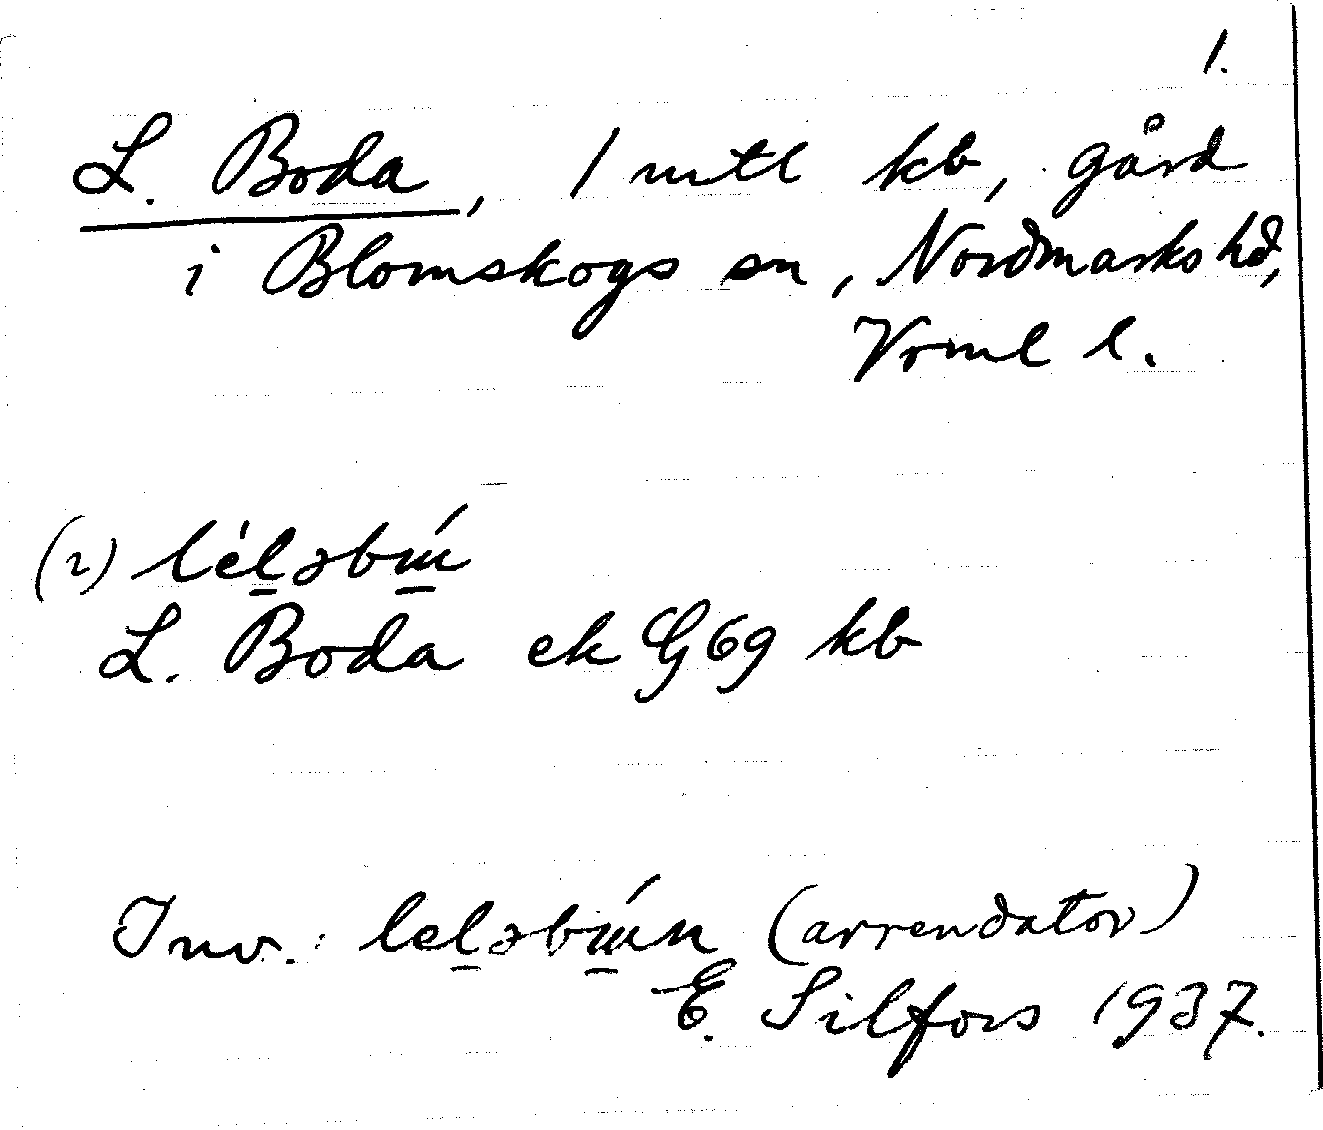 1.
L. Boda, 1 mtl kb, gård
i Blomskogs sn, Nordmarks hd,
Vrml l.
(2) lélǝbɯ́
L. Boda ek G 69 kb
Inv.: lelǝbɯ́n (arrendator)
E. Silfors 1937.